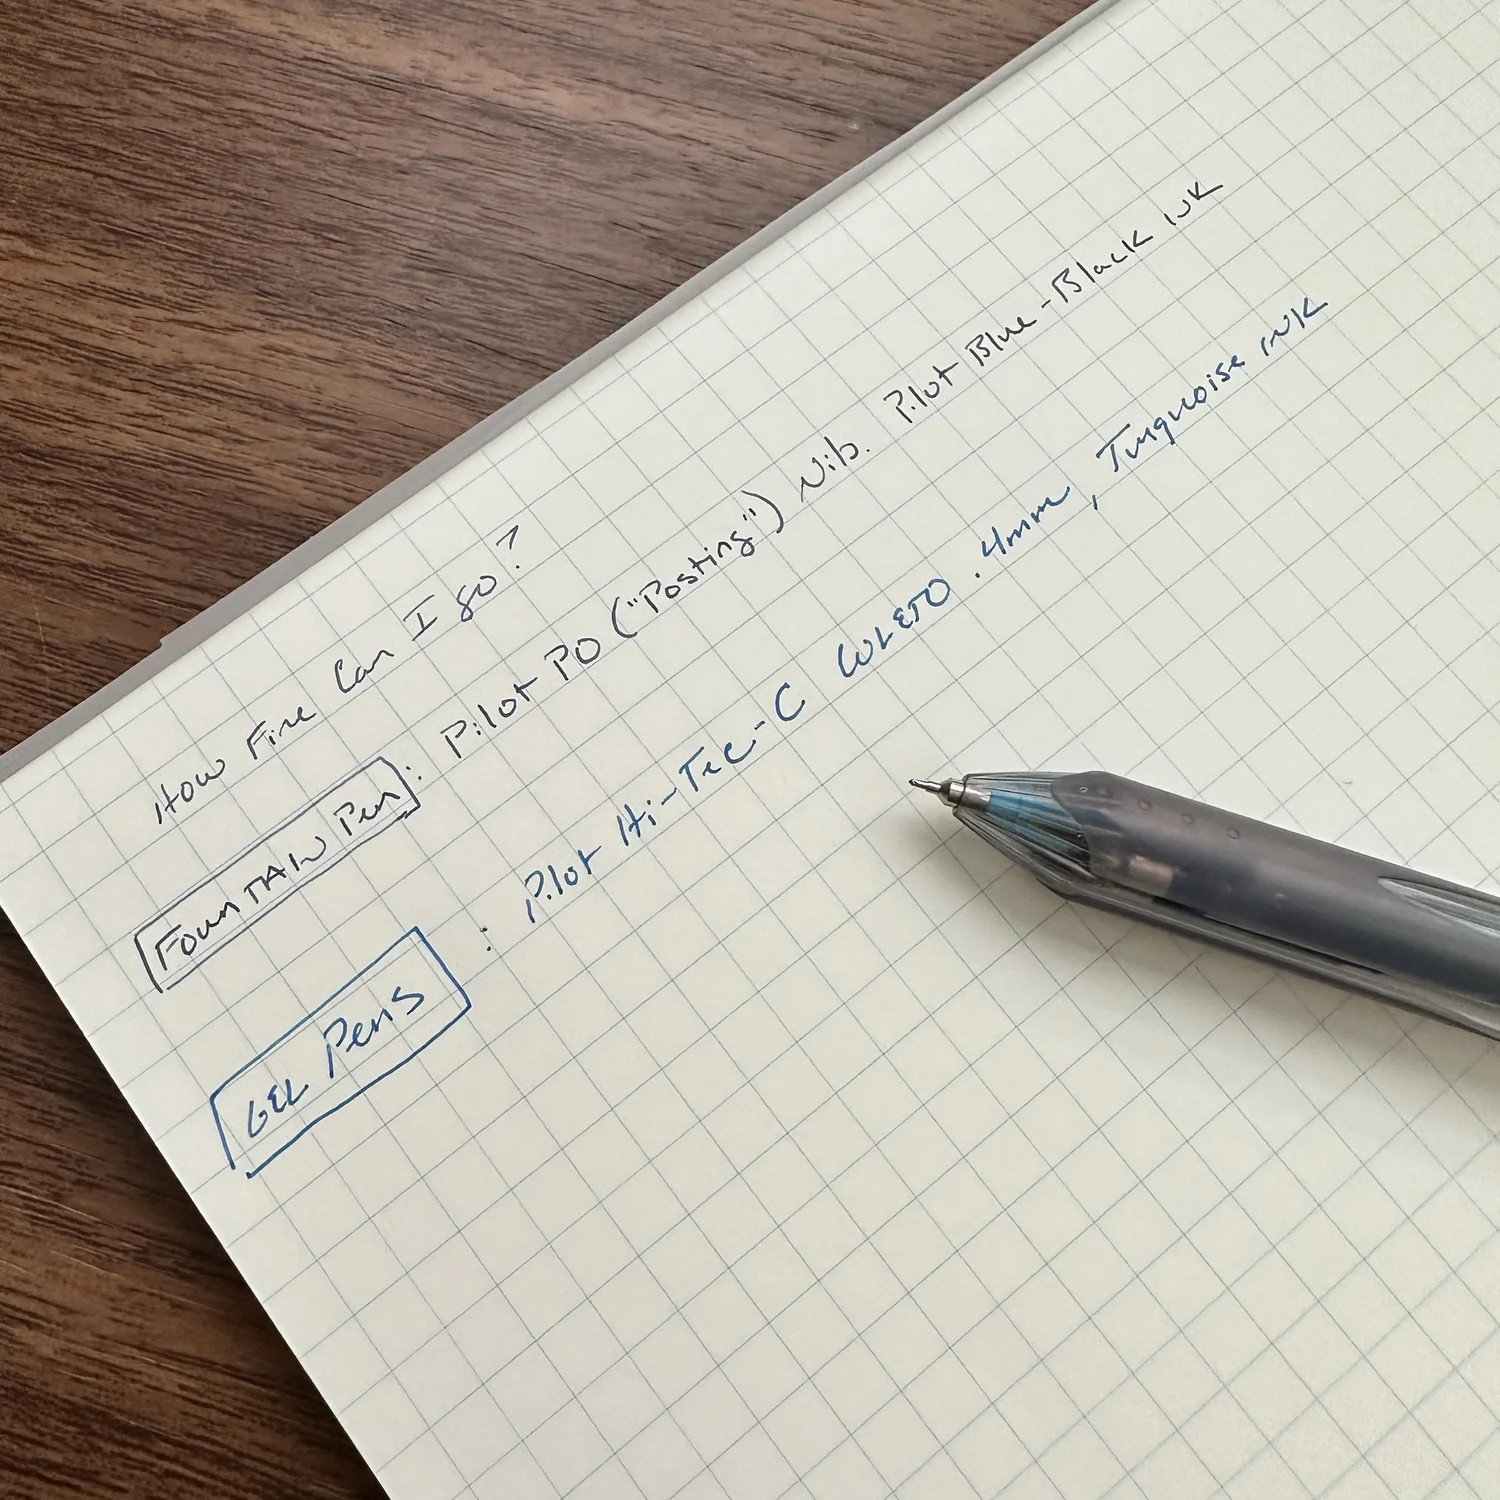 How Fine Can I go?
Fountain Pen: Pilot PO ("Posting") Nib. Pilot Blue-Black ink
GEL Pens: Pilot Hi-Tec-C COLETO .4mm, Turquoise ink